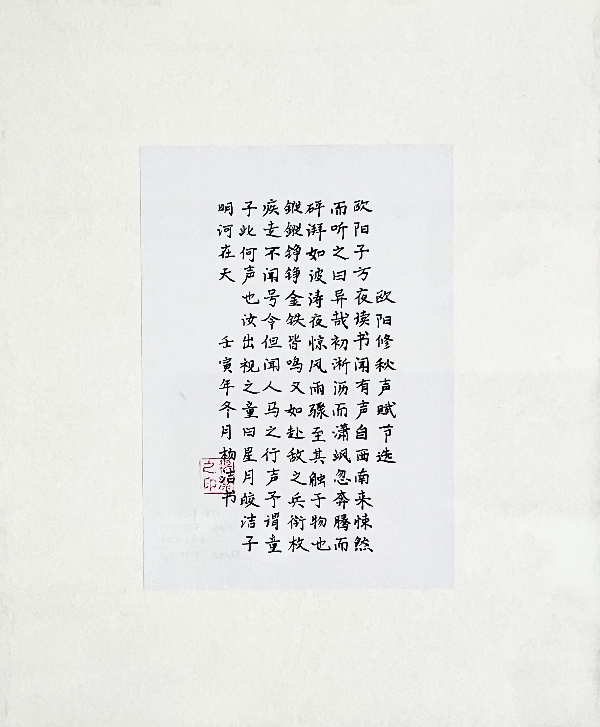 欧阳修秋声赋节选
欧阳子方夜读书闻有声自西南来悚然
而听之曰异哉初淅沥而潇飒忽奔腾而
砰湃如波涛夜惊风雨骤至其触于物也
鏦鏦铮铮金铁皆鸣又如赴敌之兵衔枚
疾走不闻号令但闻人马之行声予谓童
子此何声也汝出视之童曰星月皎洁子
明河在天 壬寅年冬月杨洁书
杨洁之印